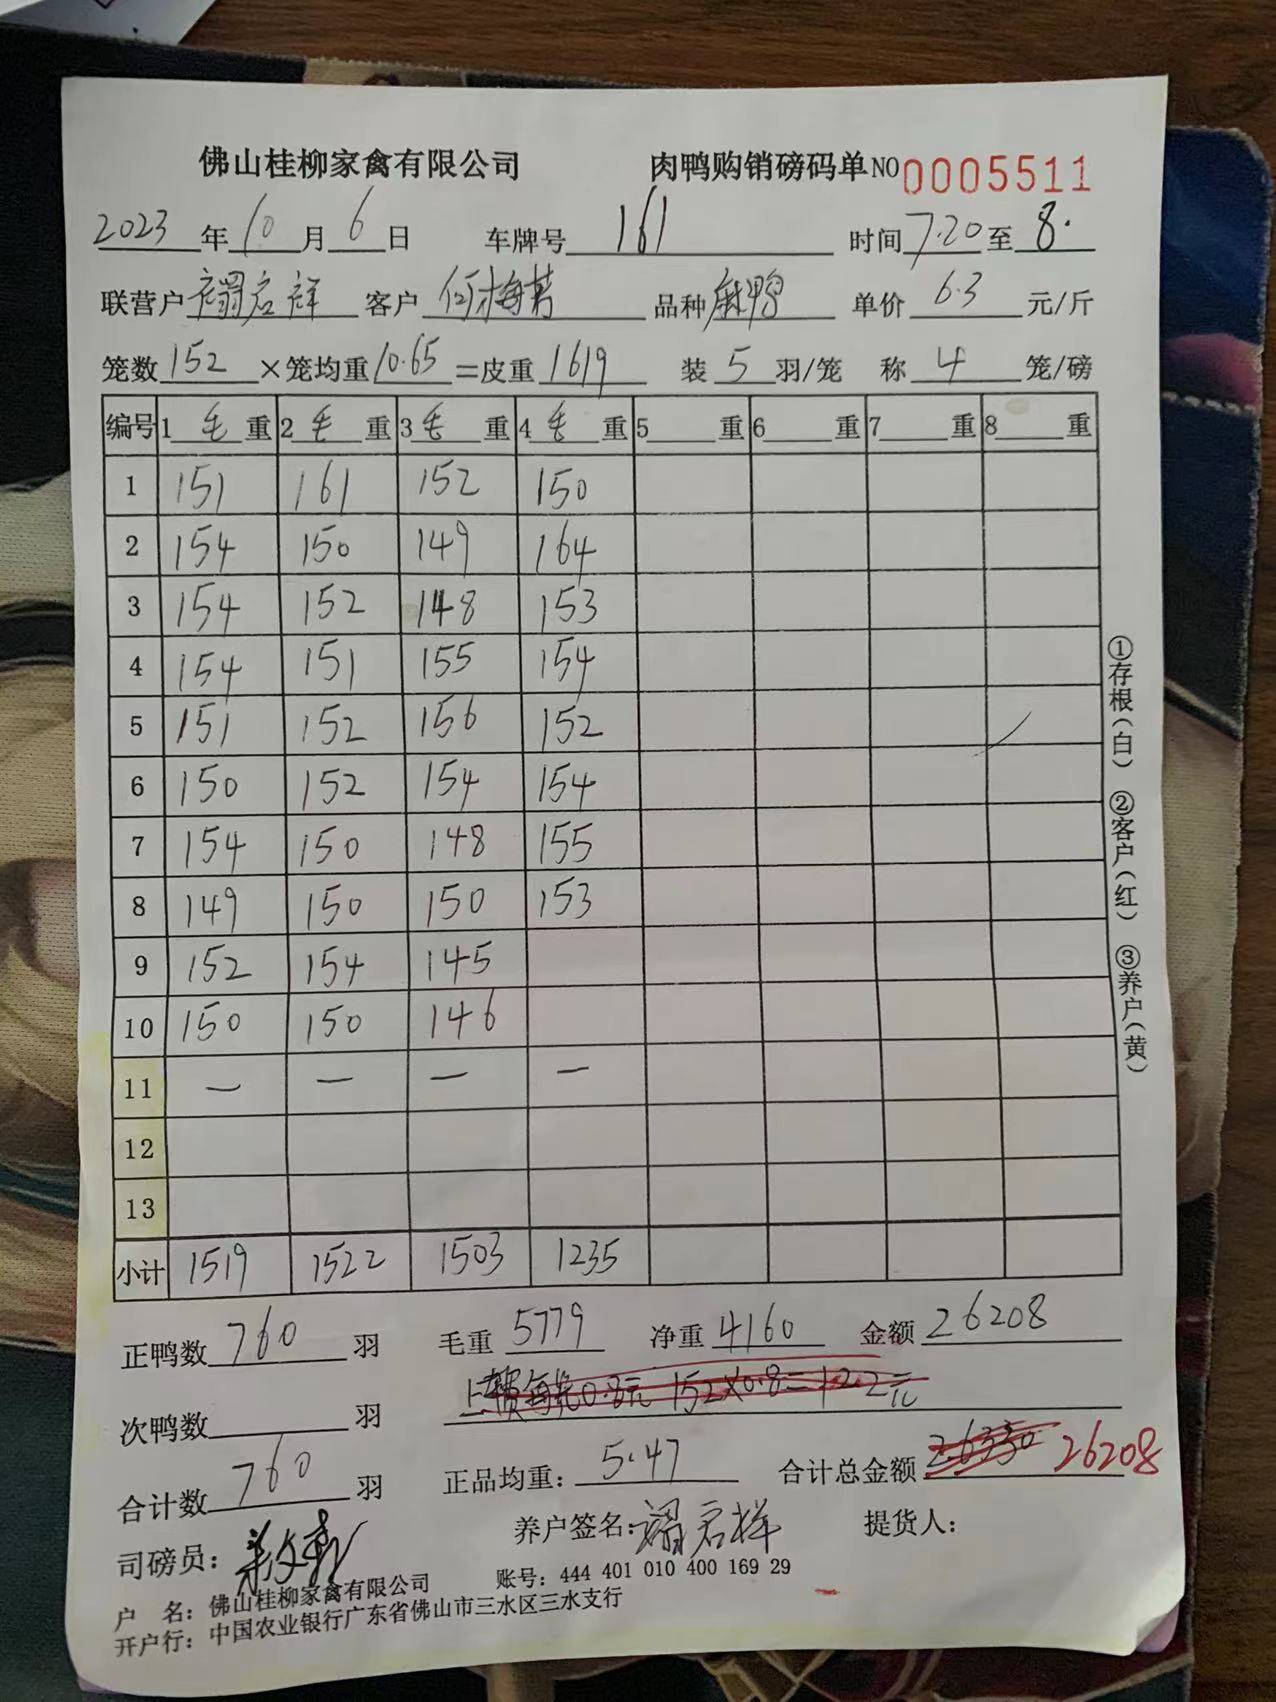 佛山桂柳家禽有限公司 肉鸭购销磅码单 NO 0005511
2023年10月6日 车牌号 161 时间 7.20 至 8.
联营户 禤启祥 客户 何梅芳 品种 麻鸭 单价 6.3 元/斤
笼数 152 ×笼均重 10.65 =皮重 1619 装 5 羽/笼 称 4 笼/磅
编号 1 毛 重 2 毛 重 3 毛 重 4 毛 重 5 重 6 重 7 重 8 重
1 151 161 152 150
2 154 150 149 164
3 154 152 148 153
4 154 151 155 154
5 151 152 156 152
6 150 152 154 154
7 154 150 148 155
8 149 150 150 153
9 152 154 145
10 150 150 146
11 — — — —
12
13
小计 1519 1522 1503 1235
正鸭数 760 羽 毛重 5779 净重 4160 金额 26208
次鸭数 羽 上车费每笼0.8元 152×0.8=122元
合计数 760 羽 正品均重: 5.47 合计总金额 26330 26208
司磅员: 养户签名: 禤启祥 提货人:
户 名: 佛山桂柳家禽有限公司 账号: 444 401 010 400 169 29
开户行: 中国农业银行广东省佛山市三水区三水支行
①存根(白) ②客户(红) ③养户(黄)